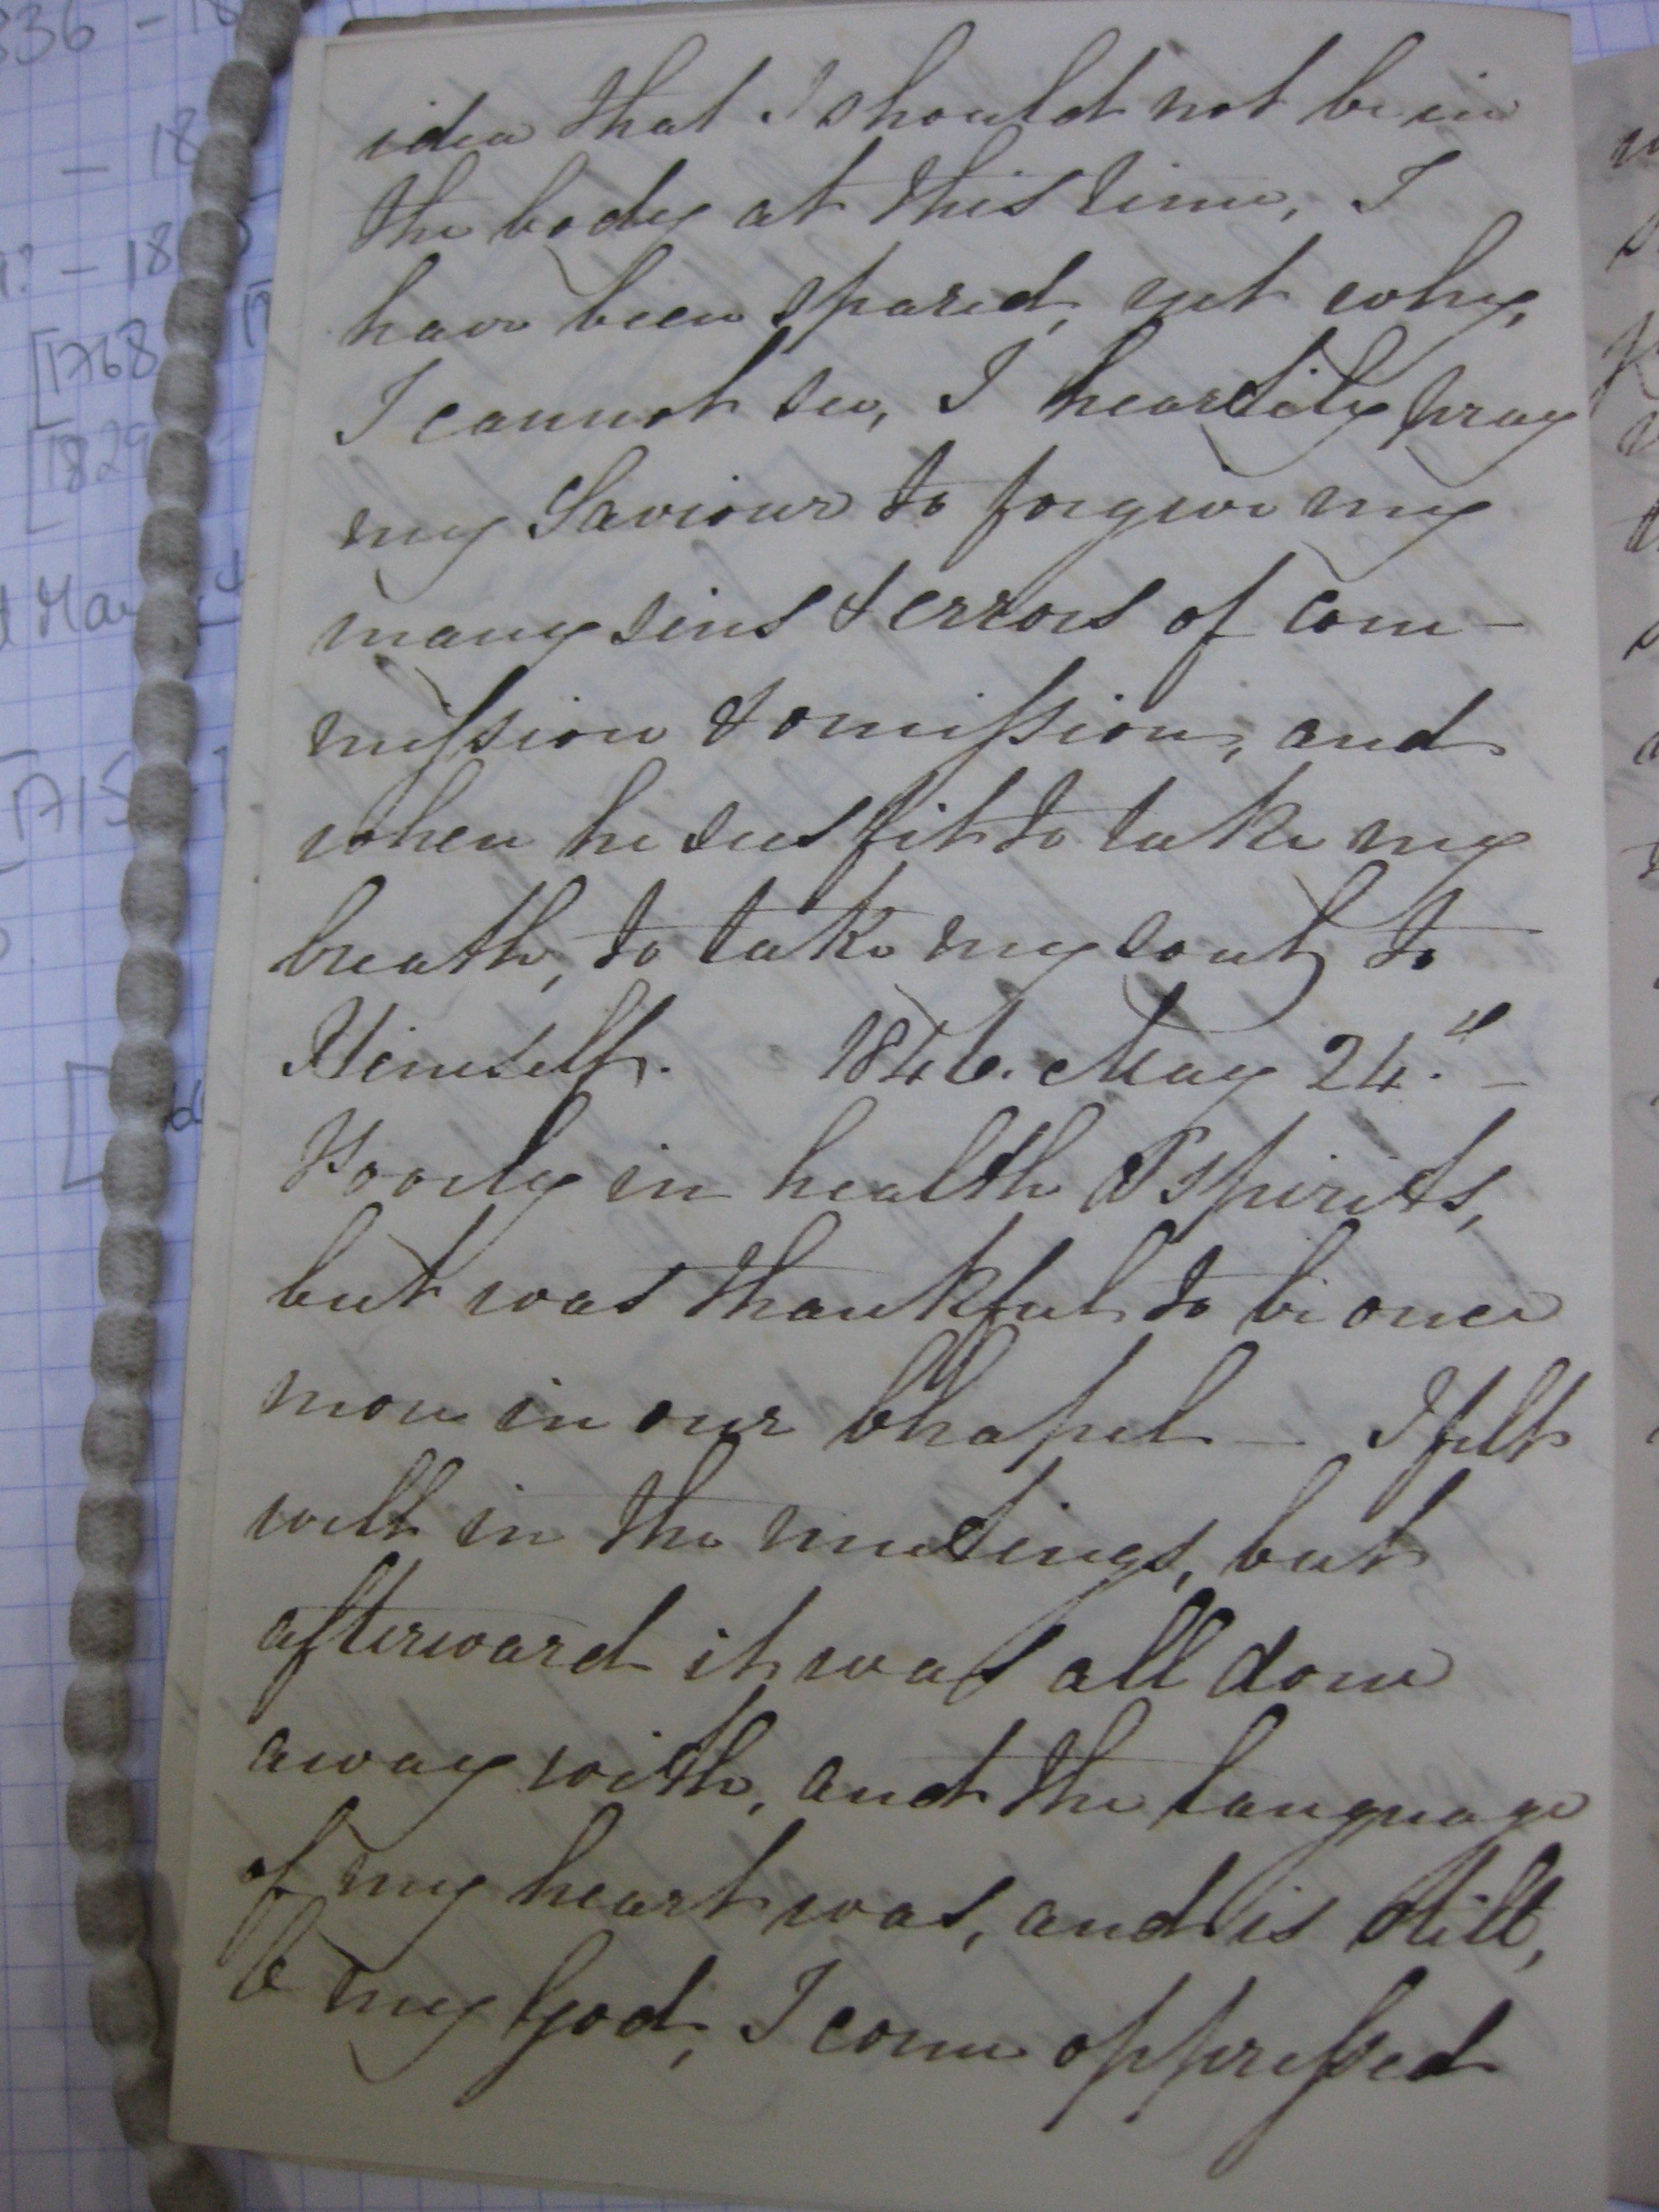 idea that I should not be in
the body at this time, I
have been spared, yet why,
I cannot see, I heartily pray
my Saviour to forgive my
many sins & errors of com-
mission & omission, and
when he sees fit to take my
breath, to take my soul to
Himself. 1846. May 24.th -
Poorly in health & spirits,
but was thankful to be once
more in our Chapel - I felt
well in the meetings, but
afterward it was all done
away with, and the language
of my heart was, and is still,
O my God, I come oppressed
336 - 18
- 18
9? - 18
[1768
[1829
Mar
[1715